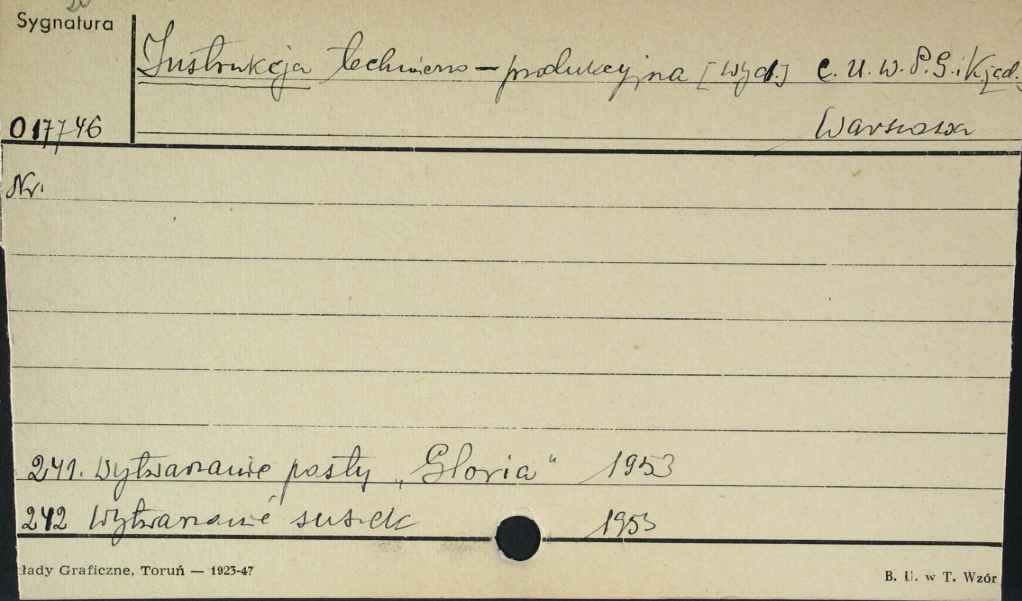 Sygnatura
Instrukcja techniczno – produkcyjna [wyd.] C. U. W. P. G. i K
017746
Warszawa
Nr.
241. Wytwarzanie pasty „Gloria" 1953
242 Wytwarzanie suszek 1953
łady Graficzne, Toruń — 1923-47
B. U. w T. Wzór